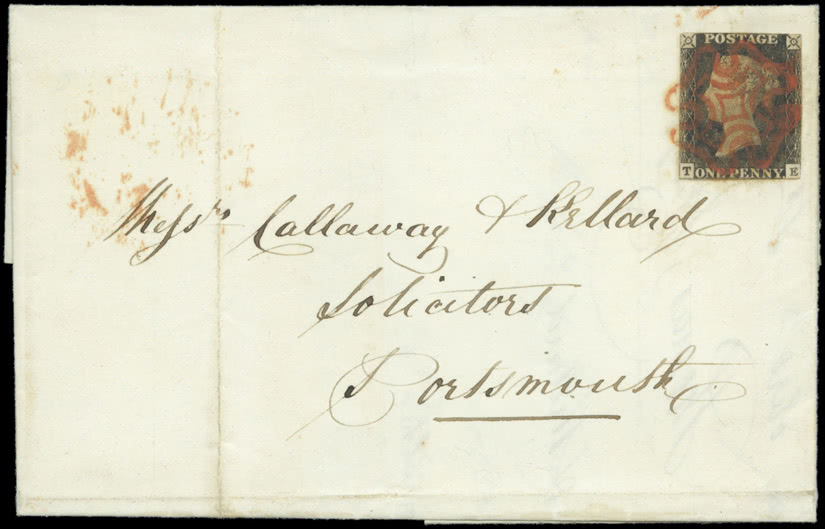 POSTAGE
T ONE PENNY E
Messrs Callaway & Kellard
Solicitors
Portsmouth